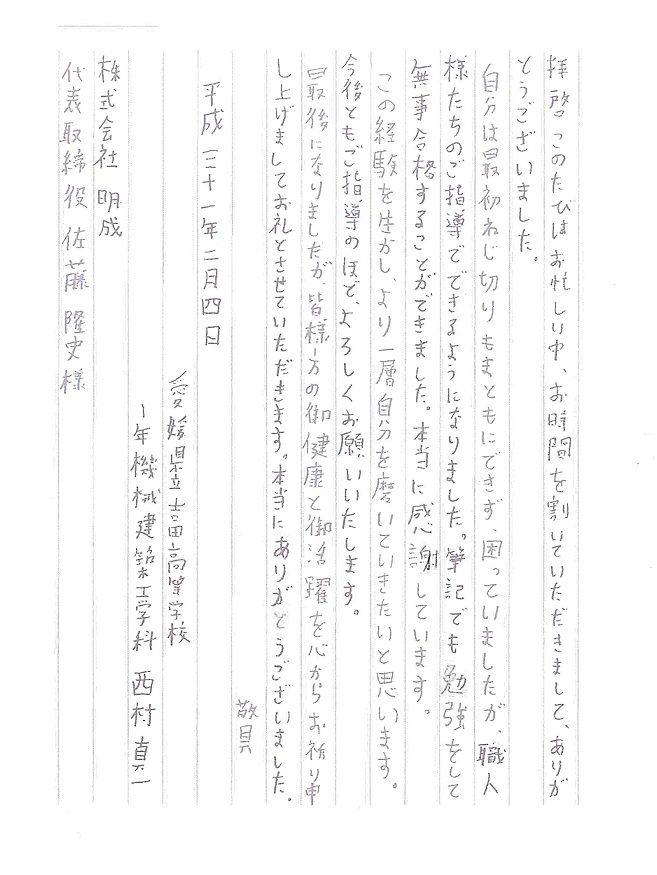 拝啓 このたびはお忙しい中、お時間を割いていただきまして、ありが
とうございました。
自分は最初ねじ切りもまともにできず、困っていましたが、職人
様たちのご指導でできるようになりました。筆記でも勉強をして
無事合格することができました。本当に感謝しています。
この経験を生かし、より一層自分を磨いていきたいと思います。
今後ともご指導のほど、よろしくお願いいたします。
最後になりましたが、皆様方の御健康と御活躍を心からお祈り申
し上げましてお礼とさせていただきます。本当にありがとうございました。
敬具
平成三十一年二月四日
愛媛県立吉田高等学校
一年機械建築工学科 西村 真一
株式会社 明成
代表取締役 佐藤 隆史様